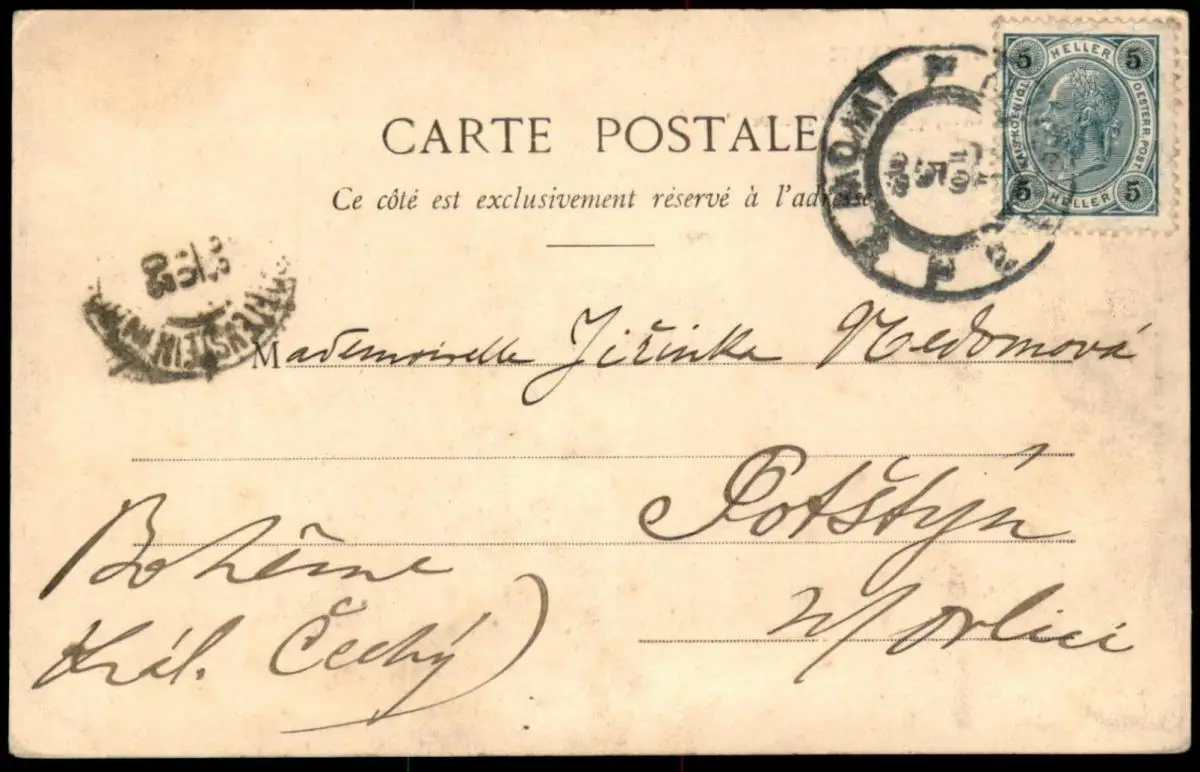 CARTE POSTALE
Ce côté est exclusivement réservé à l'adresse
5 HELLER 5
KAIS. KOENIGL. OESTERR. POST.
5 HELLER 5
LWÓW
Mademoiselle Jiřinka Nedomová
Potštýn
n/Orlicí
Bohême
Král. Čechý)